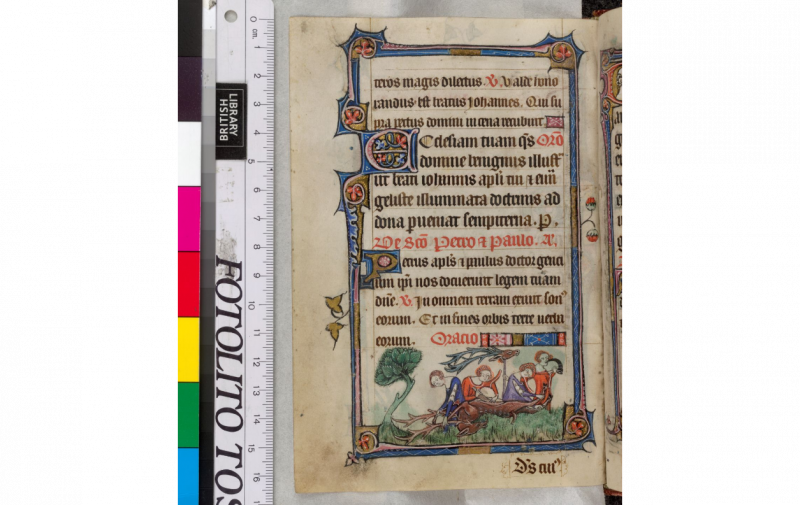 teros magis dilectus. V. Valde hono
randus est beatus Johannes. Qui su
pra pectus domini in cena recubuit
Ecclesiam tuam qs Oro
domine benignus illust
ut beati iohannis apli tui & euan
geliste illuminata doctrinis ad
dona pueniat sempiterna. P.
De Sco Petro & Paulo. A.
Petrus apls & paulus doctor genci
um ipi nos docuerunt legem tuam
dne. V. In omnem terram exiuit son
eorum. Et in fines orbis terre uerba
eorum. Oracio
Ds cui
BRITISH
LIBRARY
FOTOLITO TOS
0 cm. 1 2 3 4 5 6 7 8 9 10 11 12 13 14 15 16